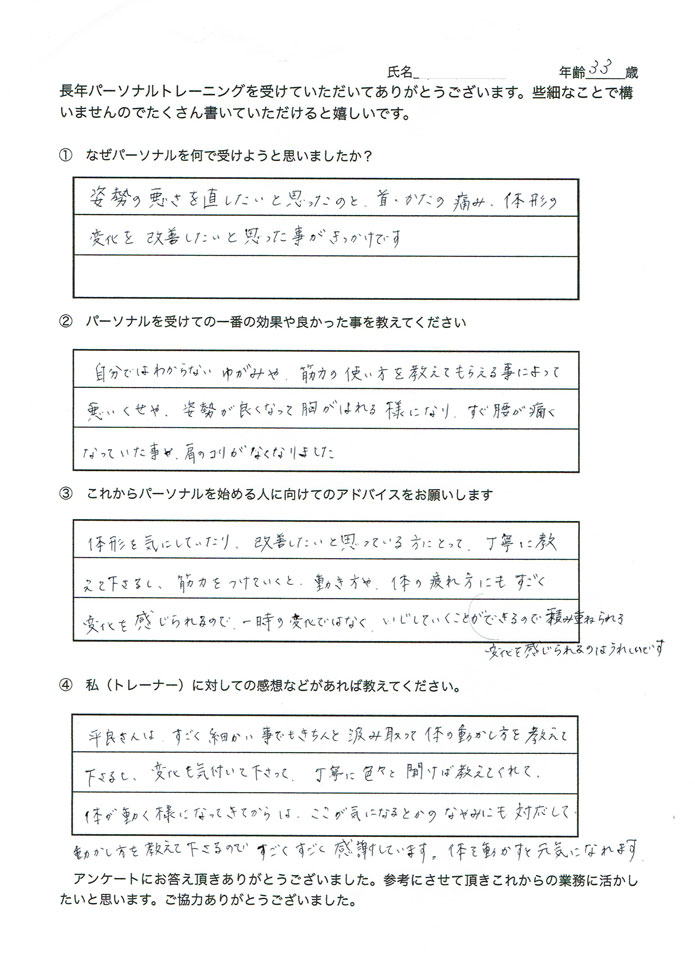 氏名 年齢33歳
長年パーソナルトレーニングを受けていただいてありがとうございます。些細なことで構
いませんのでたくさん書いていただけると嬉しいです。
① なぜパーソナルを何で受けようと思いましたか？
姿勢の悪さを直したいと思ったのと、首・かたの痛み、体形の
変化を改善したいと思った事がきっかけです
② パーソナルを受けての一番の効果や良かった事を教えてください
自分ではわからないゆがみや、筋力の使い方を教えてもらえる事によって
悪いくせや、姿勢が良くなって胸がはれる様になり、すぐ腰が痛く
なっていた事や、肩のコリがなくなりました
③ これからパーソナルを始める人に向けてのアドバイスをお願いします
体形を気にしていたり、改善したいと思っている方にとって、丁寧に教
えて下さるし、筋力をつけていくと、動き方や、体の疲れ方にもすごく
変化を感じられるので、一時の変化ではなく、いじしていくことができるので積み重ねられる
変化を感じられるのはうれしいです
④ 私（トレーナー）に対しての感想などがあれば教えてください。
平良さんは、すごく細かい事でもきちんと汲み取って体の動かし方を教えて
下さるし、変化も気付いて下さって、丁寧に色々と聞けば教えてくれて、
体が動く様になってきてからは、ここが気になるとかのなやみにも対応して
動かし方を教えて下さるのですごくすごく感謝しています。体を動かすと元気になれます
アンケートにお答え頂きありがとうございました。参考にさせて頂きこれからの業務に活かし
たいと思います。ご協力ありがとうございました。